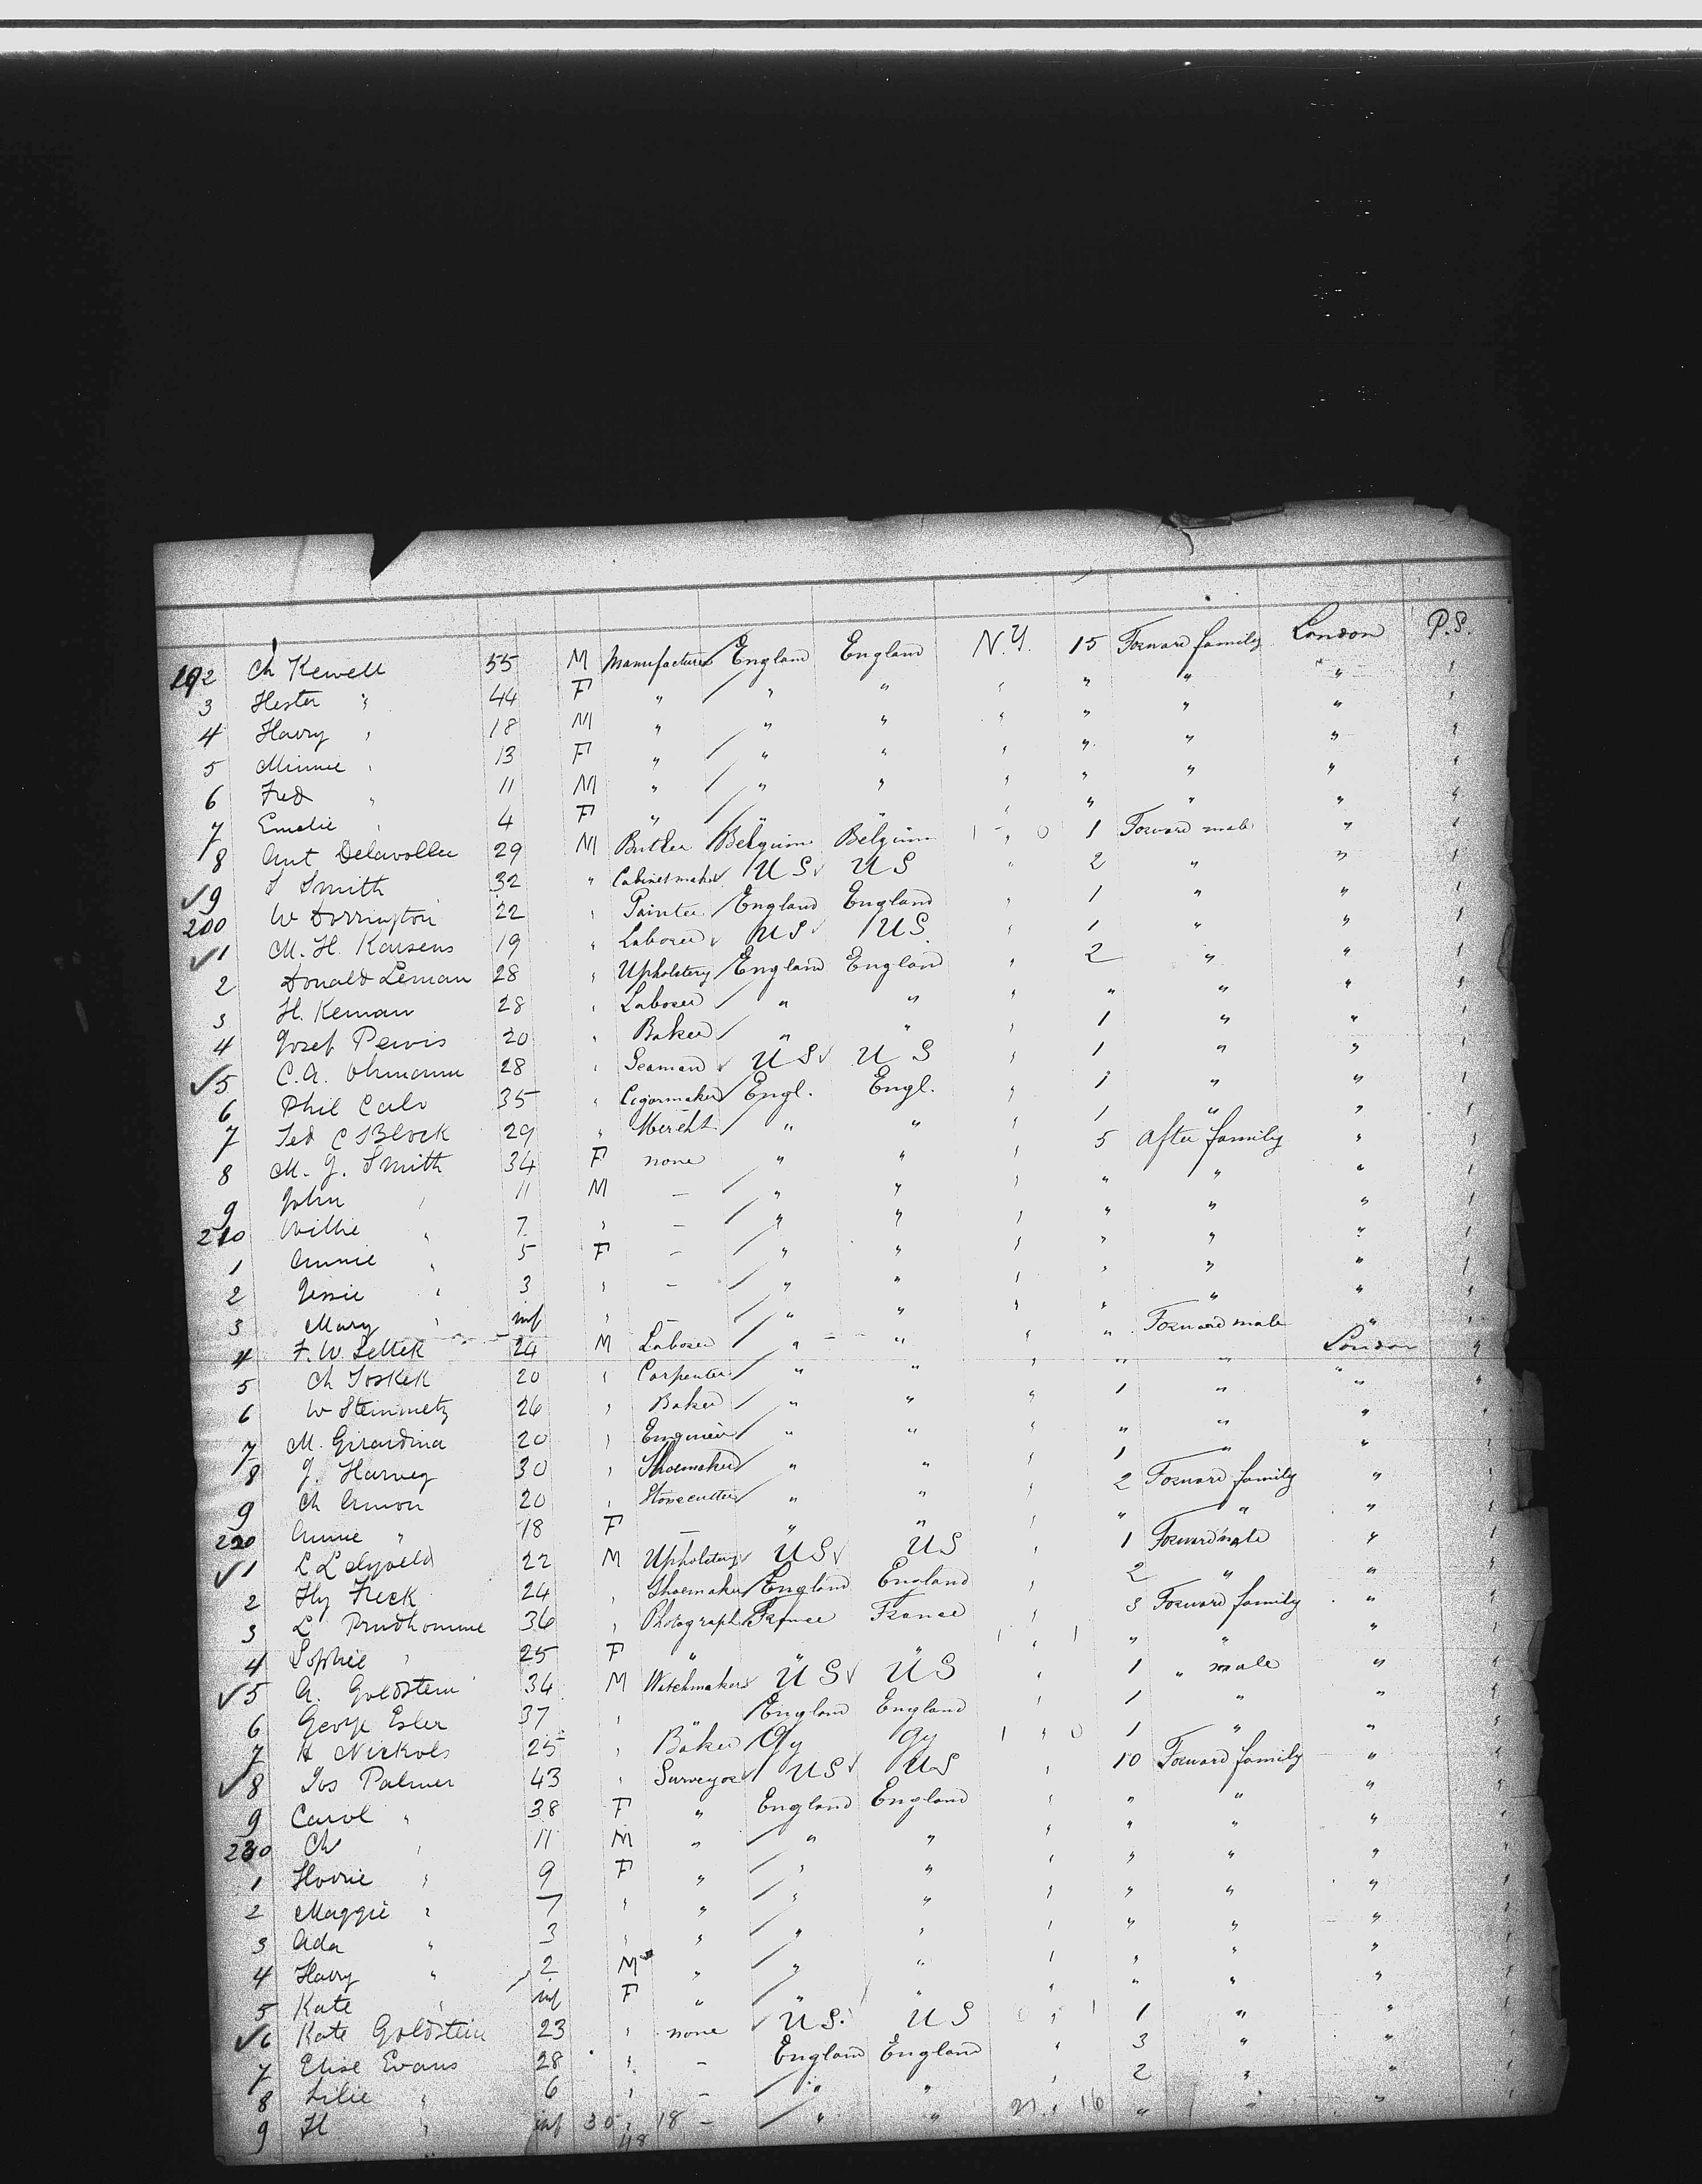 192 Ch Kewell 55 M Manufacturer England England N.Y. 15 Forward family London P.S.
3 Hester " 44 F " " " " " " " "
4 Harry " 18 M " " " " " " " "
5 Minnie " 13 F " " " " " " " "
6 Fred " 11 M " " " " " " " "
7 Emelie " 4 F " " " " " " " "
8 Ant 29 M Butler Belgium Belgium 1 " 0 1 Forward male " "
✓9 S Smith 32 " Cabinetmaker US US " 2 " " "
200 W Dorrington 22 " Painter England England " 1 " " "
✓1 M. H. Karsens 19 " Laborer US US " 1 " " "
2 Donald Leman 28 " Upholstery England England " 2 " " "
3 H. Keman 28 " Laborer " " " " " " "
4 Josef Pervis 20 " Baker " " " 1 " " "
✓5 C. A. Ohmann 28 " Seaman US US " 1 " " "
6 Phil Calv 35 " Cigarmaker Engl. Engl. " 1 " " "
7 Ted C Block 29 " Mercht " " " 1 " " "
8 M. J. Smith 34 F none " " " 5 After family " "
9 John " 11 M — " " " " " " "
210 Willie " 7 " — " " " " " " "
1 Annie " 5 F — " " " " " " "
2 Jessie " 3 " — " " " " " " "
3 Mary " inf " — " " " " " " "
4 F. W. Settek 24 M Laborer " " " " Forward male London "
5 Ch Soskek 20 " Carpenter " " " " " " "
6 W Steinmetz 26 " Baker " " " 1 " " "
7 M. Girardina 20 " Engineer " " " " " " "
8 J. Harvey 30 " Shoemaker " " " 1 " " "
9 Ch Amon 20 " Stonecutter " " " 2 Forward family " "
220 Annie " 18 F — " " " " " " "
✓1 22 M Upholstery US US " 1 Forward male " "
2 Hy Fleck 24 " Shoemaker England England " 2 " " "
3 L. Prudhomme 36 " Photograph France France " 3 Forward family " "
4 Sophie " 25 F " " " 1 " 1 " " " "
✓5 A. Goldstein 34 M Watchmaker US US " 1 " male " "
6 George Esler 37 " England England " 1 " " "
7 H Nickols 25 " Baker Gy Gy 1 " 0 1 " " "
✓8 Jos Palmer 43 " Surveyor US US " 10 Forward family " "
9 Carol " 38 F " England England " " " " "
230 Ch " 11 M " " " " " " " "
1 Horrie " 9 F " " " " " " " "
2 Maggie " 7 " " " " " " " " "
3 Ada " 3 " " " " " " " " "
4 Harry " 2 M " " " " " " " "
5 Kate " inf F " " " " " " " "
✓6 Kate Goldstein 23 " none US. US 0 " 1 1 " " "
7 Elise Evans 28 " — England England " 3 " " "
8 Lilie " 6 " — " " " 2 " " "
9 H " inf 30 " 18 — " " 21 " 16 " " " "
48